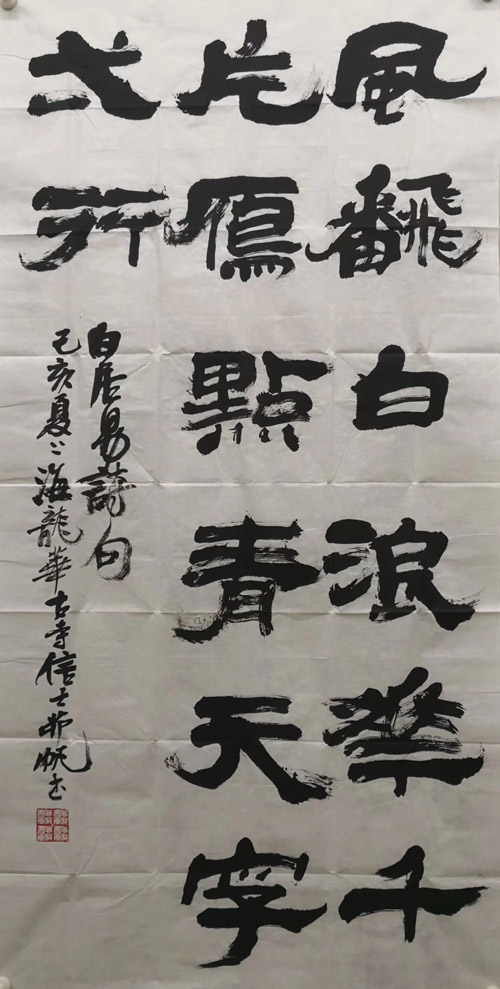 風飜白浪華千
片鴈點青天字
弌行
白居易詩句
己亥夏上海龍華古寺信士帆书